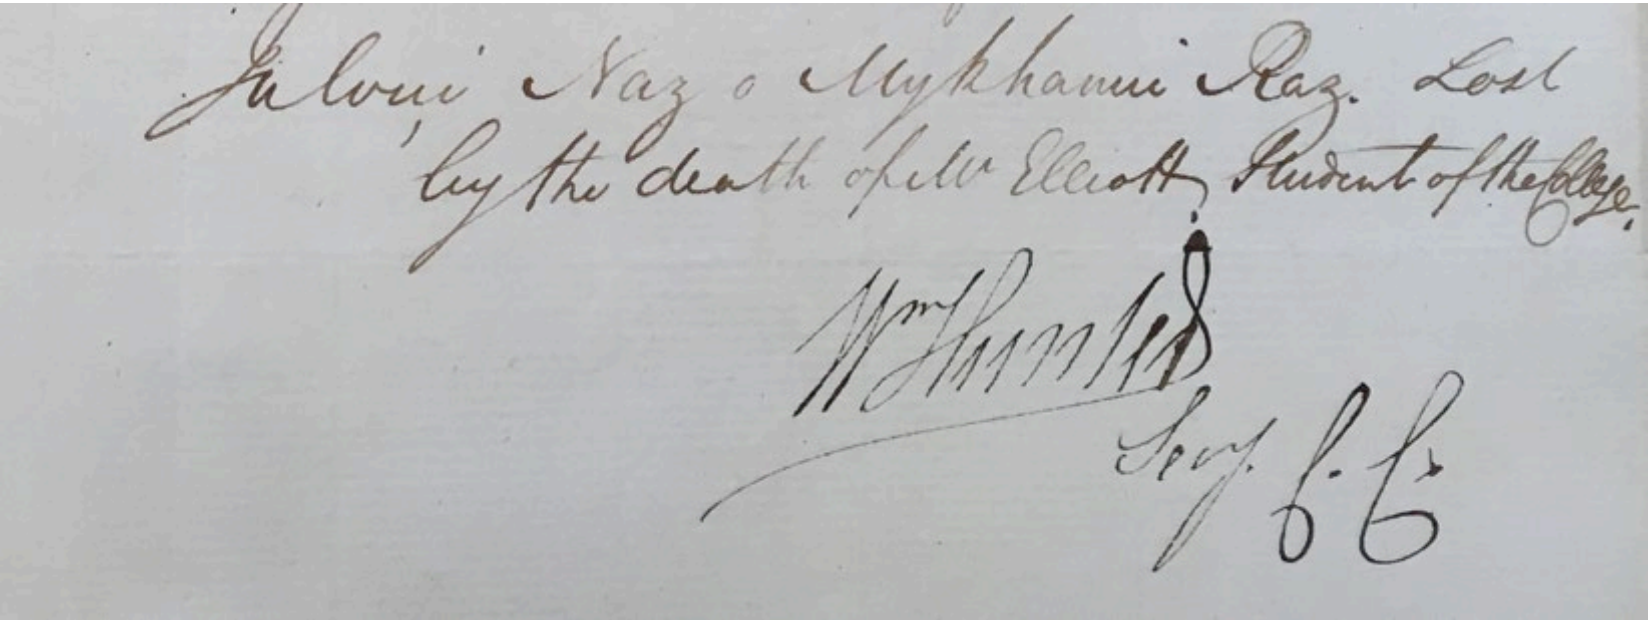 Julvui Naz o Mykhanui Raz. Lost
by the death of Mr Elliott, Student of the College.
Wm Hunter
Secy. C. C.